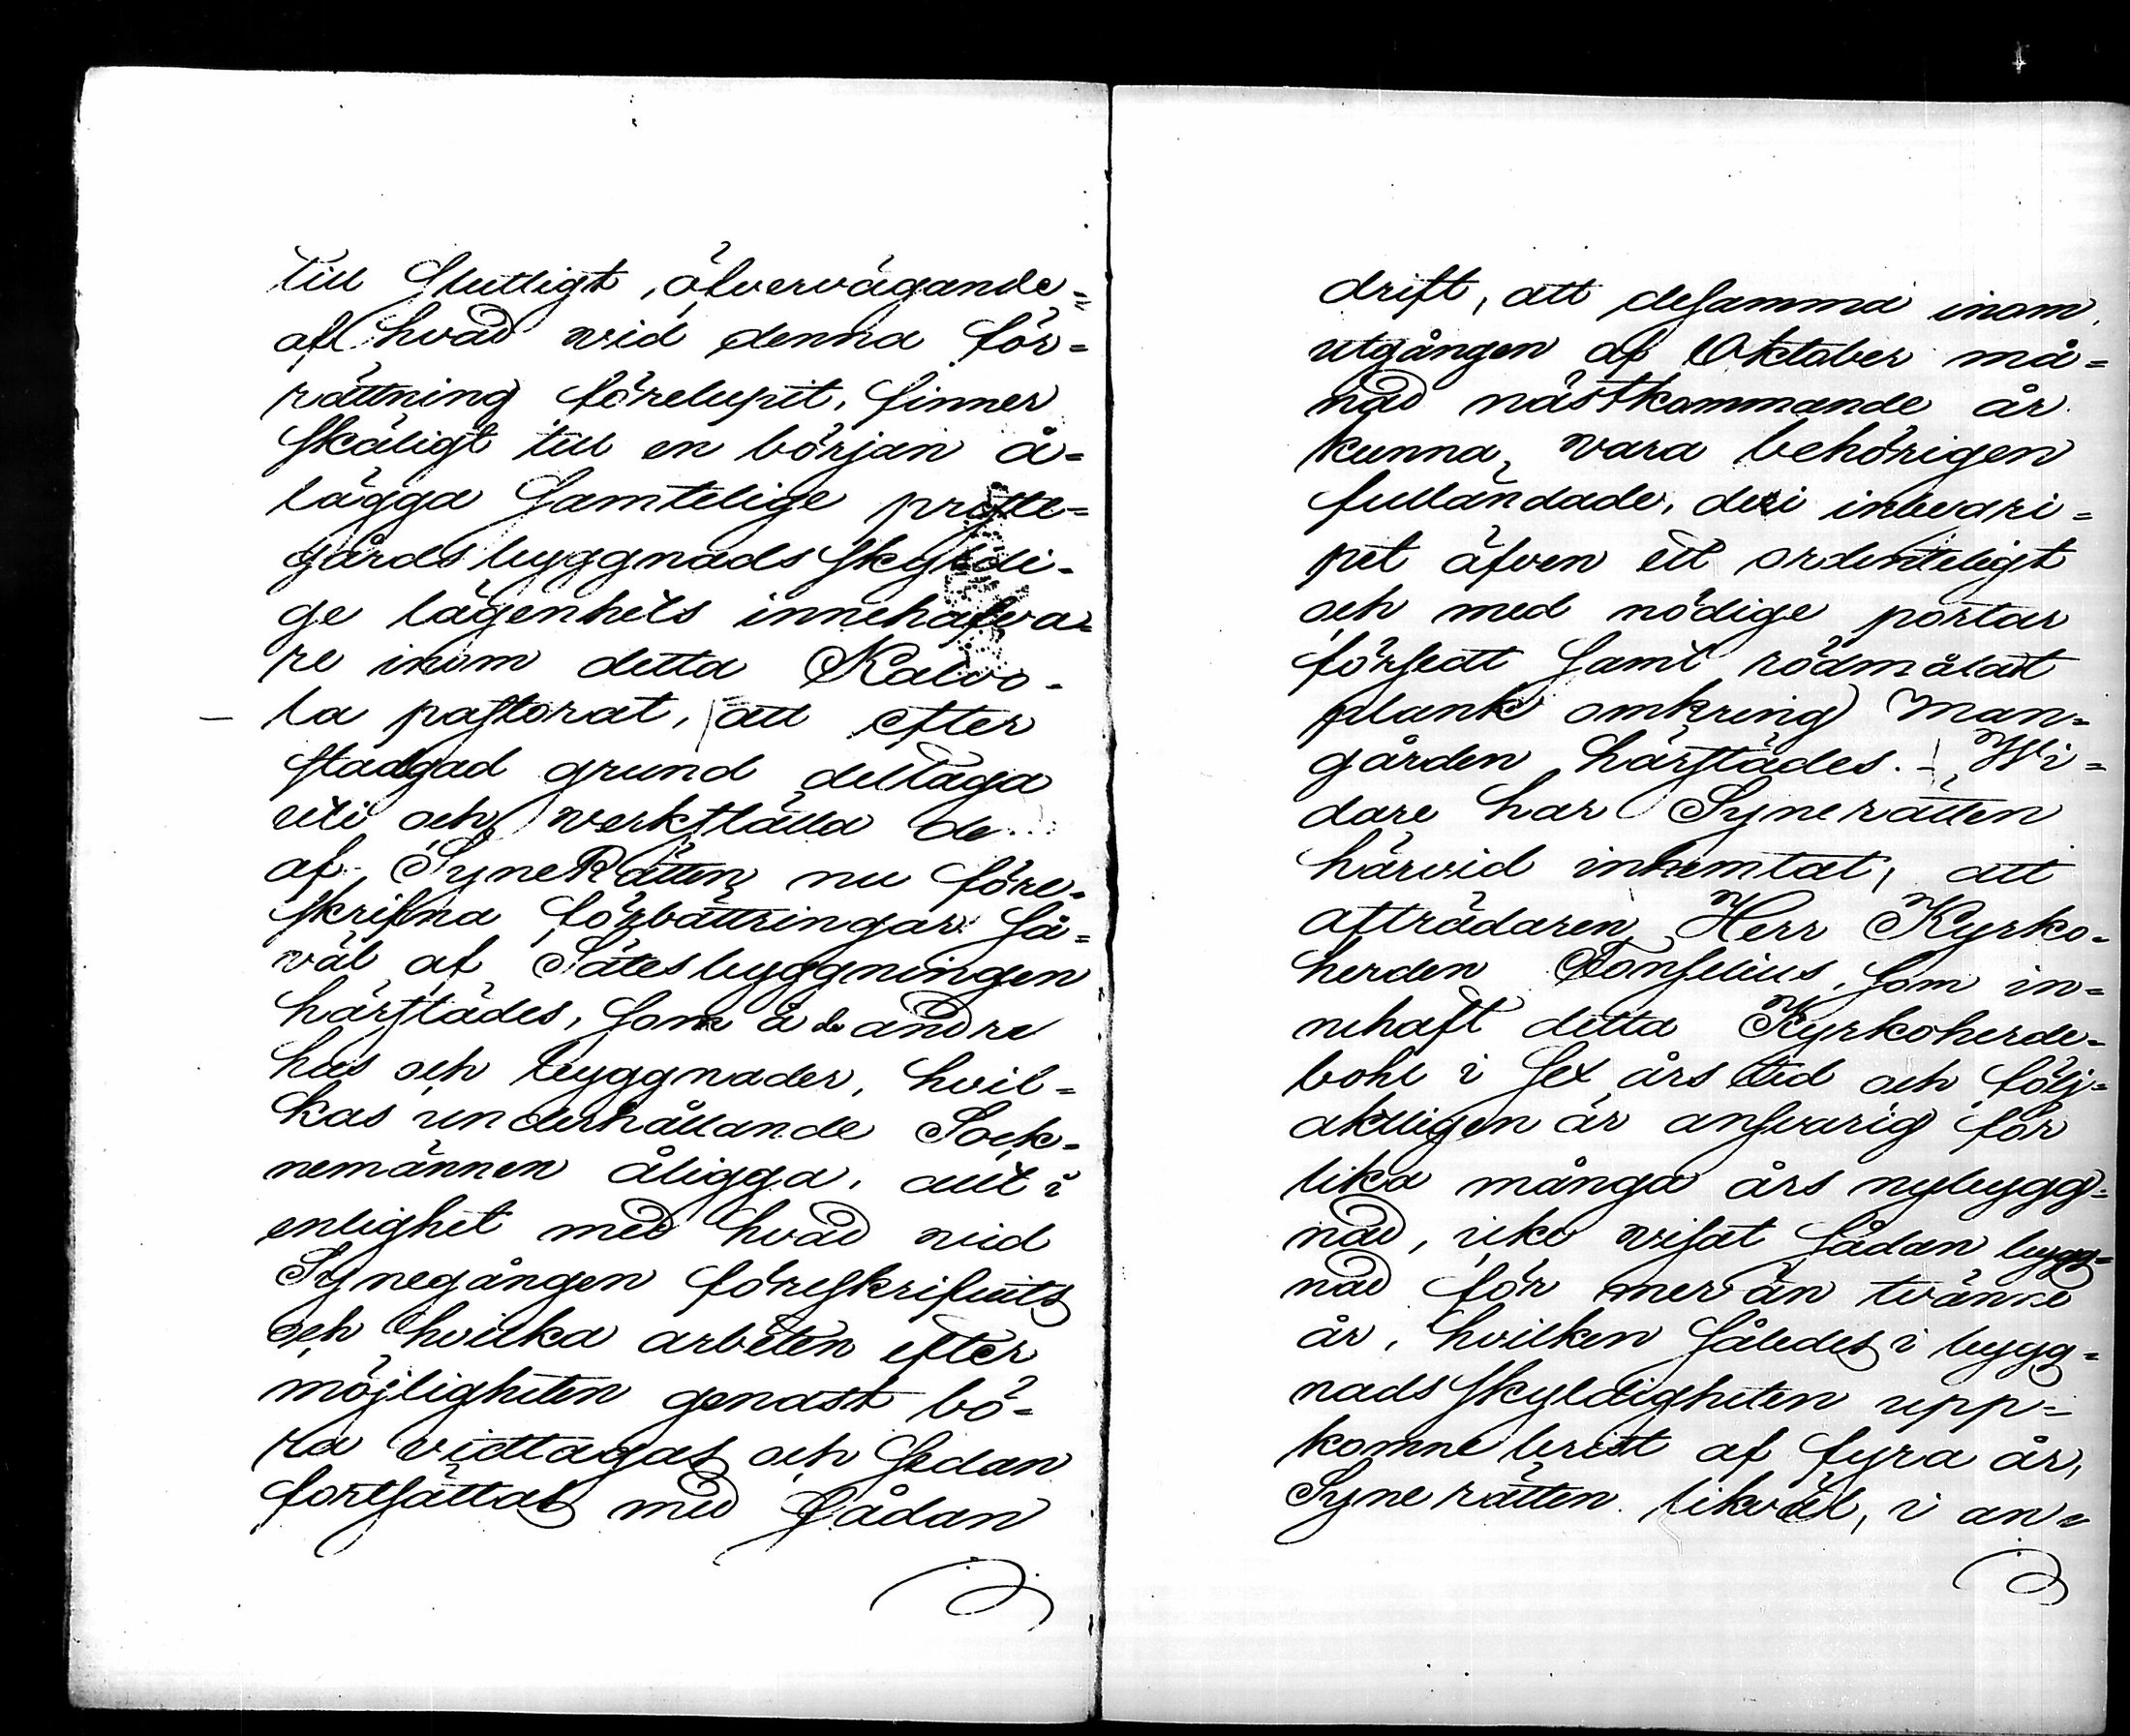 till slutligt öfvervägande
af hvad wid denna för=
rättning förelupit, finner
skäligt till en början å=
lägga samtelige preste=
gårds byggnads skyldi=
ge lägenhets innehafva=
re inom detta Kalvo=
la pastorat, att efter
stadgad grund deltaga
uti och werkställa de
af SyneRätten nu före=
skrifna förbättringar så=
väl af Sätesbyggningen
härstädes, som å de andre
hus och byggnader, hvil=
kas underhållande Sock=
nemännen åligga, allt i
enlighet med hvad wid
Synegången föreskrifvits
och hvilka arbeten efter
möjligheten genast bö=
ra vidtagas och sedan
fortsättas med sådan
drift, att desamma inom
utgången af Oktober må=
nad nästkommande år
kunna vara behörigen
fulländade, deri inbegri=
pet äfven ett ordenteligt
och med nödige portar
försedt samt rödmålat
plank omkring Man=
gården härstädes. - Wi=
dare har Synerätten
härvid inhemtat, att
afträdaren Herr Kyrko=
herden Fonselius, som in=
nehaft detta Kyrkoherde=
bohl i sex års tid och följ=
aktligen är ansvarig för
lika många års nybygg=
nad, icke wisat sådan bygg=
nad för mer än tvänne
år, hvilken således i bygg=
nads skyldigheten upp=
komne brist af fyra år,
Synerätten likväl, i an=